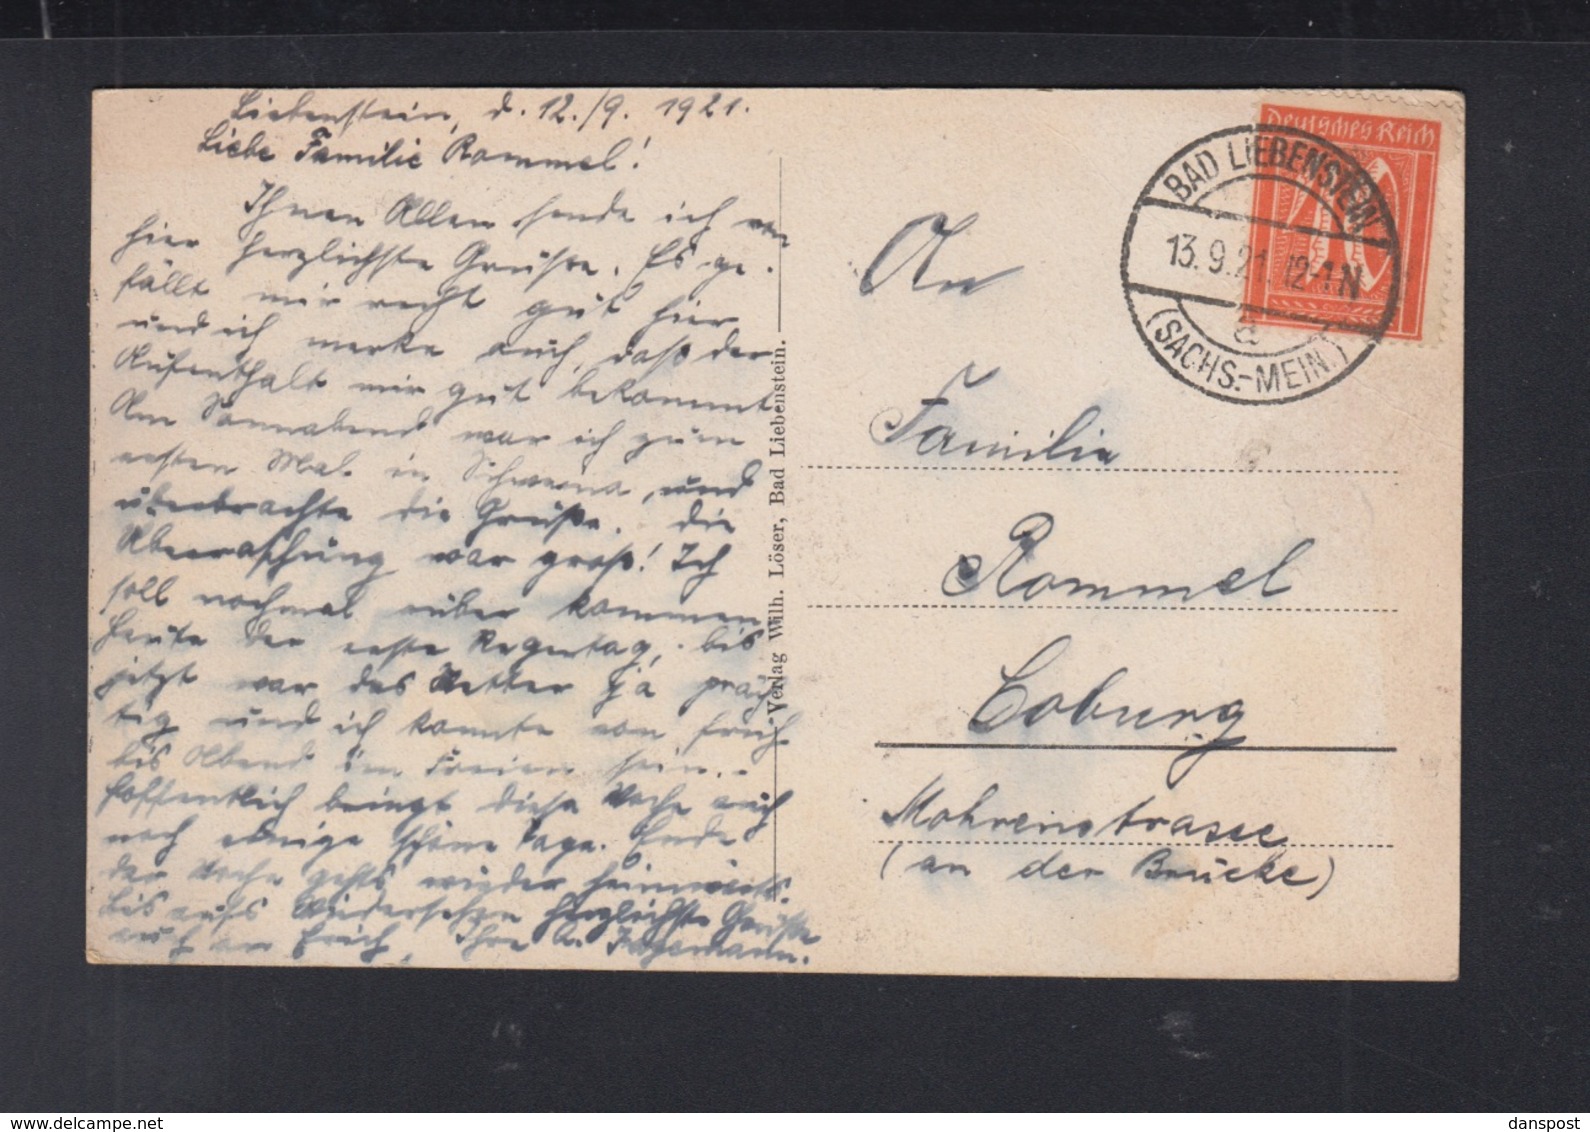 Liebenstein, d. 12./9. 1921.
Liebe Familie Rommel!
Ihnen Allen sende ich von
hier herzlichste Grüße. Es ge-
fällt mir recht gut hier
und ich merke auch, daß der
Aufenthalt mir gut bekommt
Am Sonnabend war ich zum
ersten Mal in Schweina, und
überbrachte die Grüße. Die
Überraschung war groß! Ich
soll nochmal rüber kommen
heute der erste Regentag, bis
jetzt war das Wetter ja präch-
tig und ich konnte von früh
bis Abend im Freien sein.
hoffentlich bringt diese Woche auch
noch einige schöne Tage. Ende
der Woche gehts wieder heimwärts.
Bis aufs Wiedersehen herzlichste Grüße
auch an Erich, Ihre
Verlag Wilh. Löser, Bad Liebenstein.
Deutsches Reich
BAD LIEBENSTEIN
13.9.21. 12-1 N
a
(SACHS.-MEIN.)
An
Familie
Rommel
Coburg
Mohrenstrasse
(an der Brücke)
danspost